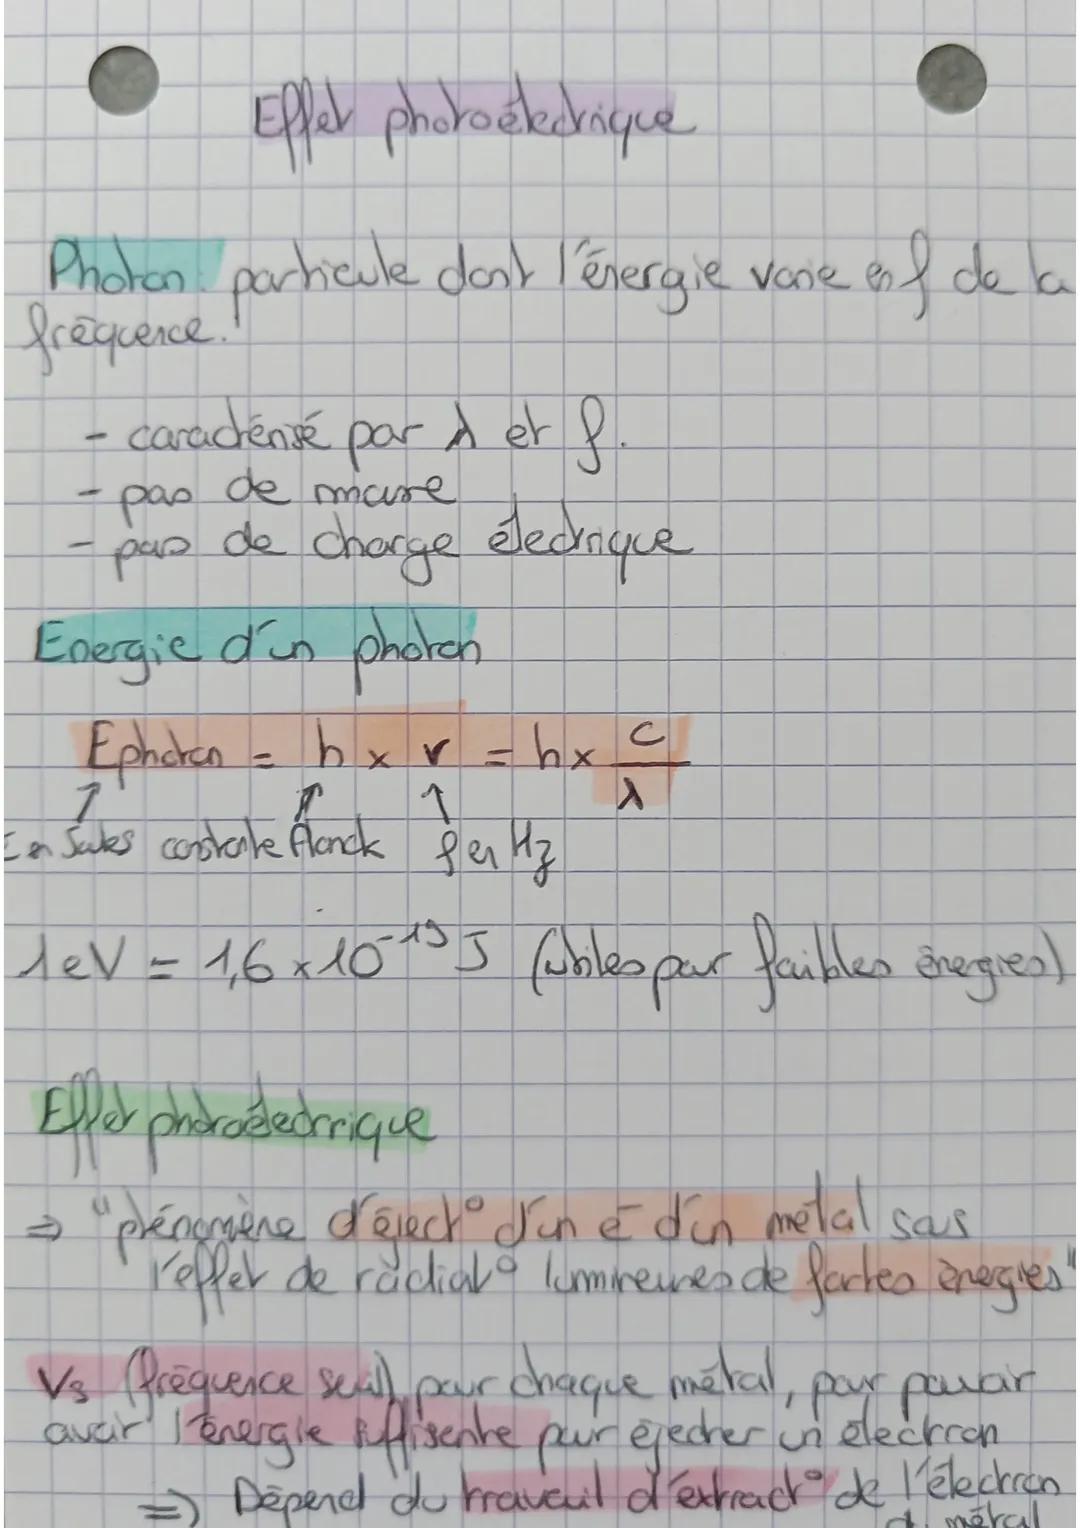 Effet photoélectrique
Photon : particule dont l'énergie varie en f de la
fréquence.
- caractérisé par λ et f.
- pas de masse
- pas de charge électrique
Energie d'un photon
Ephoton = h × ν = h × c/λ
↑ ↑ ↑
En Joules constante Planck f en Hz
1eV = 1,6 × 10⁻¹⁹ J (utiles pour faibles énergies)
Effet photoélectrique
⇒ "phénomène d'éject° d'un e⁻ d'un métal sous
l'effet de radiat° lumineuses de fortes énergies"
Vs (fréquence seuil) pour chaque métal, pour pouvoir
avoir l'énergie suffisente pour éjecter un électron
⇒ Dépend du travail d'extract° de l'électron
métal